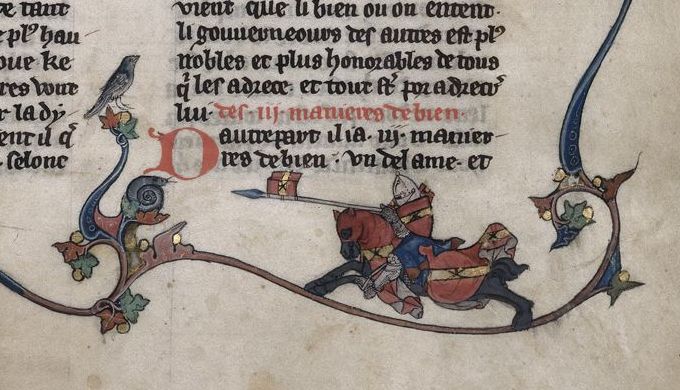 de tant
e plꝰ hau
oue ke
res vont
r la dy
ent il q̄
selonc
vient que li bien ou on entent.
li gouverneours des autres est plꝰ
nobles et plus honorables de tous
q̄ les adrece. et tout
liu. des .iij. manieres de bien.
Dautrepart il i a .iij. manier
res de bien. Un del ame. et